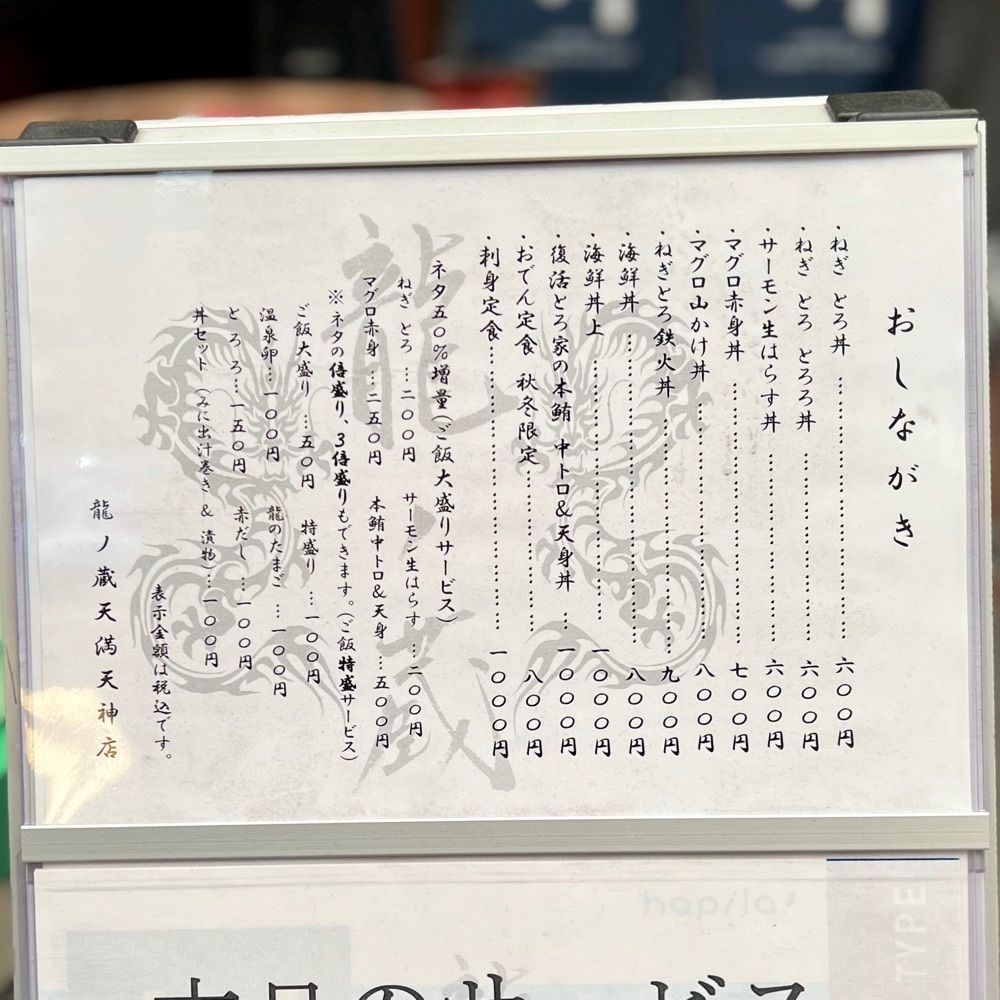 おしながき
・ねぎ とろ丼 ……………………… 六〇〇円
・ねぎ とろ とろろ丼 ……………………… 六〇〇円
・サーモン生はらす丼 ……………………… 六〇〇円
・マグロ赤身丼 ……………………… 七〇〇円
・マグロ山かけ丼 ……………………… 八〇〇円
・ねぎとろ鉄火丼 ……………………… 九〇〇円
・海鮮丼 ……………………… 八〇〇円
・海鮮丼上 ……………………… 一〇〇〇円
・復活とろ家の本鮪 中トロ&天身丼 … 一〇〇〇円
・おでん定食 秋冬限定 ……………… 八〇〇円
・刺身定食 ……………………… 一〇〇〇円
ネタ五〇%増量(ご飯大盛りサービス)
ねぎ とろ …二〇〇円 サーモン生はらす …二〇〇円
マグロ赤身 …二五〇円 本鮪中トロ&天身 …五〇〇円
※ネタの倍盛り、3倍盛りもできます。(ご飯特盛サービス)
ご飯大盛り …五〇円 特盛り …一〇〇円
温泉卵…一〇〇円 龍のたまご …一〇〇円
とろろ…一五〇円 赤だし …一〇〇円
丼セット (みに出汁巻き & 漬物)…一〇〇円
表示金額は税込です。
龍ノ蔵天満天神店
龍ノ蔵
hapila!
TYPE
本日のサービス